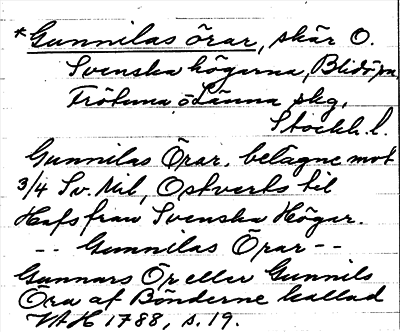 *Gunnilas örar, skär O.
Svenska högarna, Blidö sn,
Frötuna o Länna skg,
Stockh. l.
Gunnilas Örar. belägne mot
3/4 Sv. Mil, Ostverts til
Hafs fran Svenska Högar.
-- Gunnilas Örar --
Gunnars Ör eller Gunnils
Öra af Bönderne kallad
1788, s. 19.